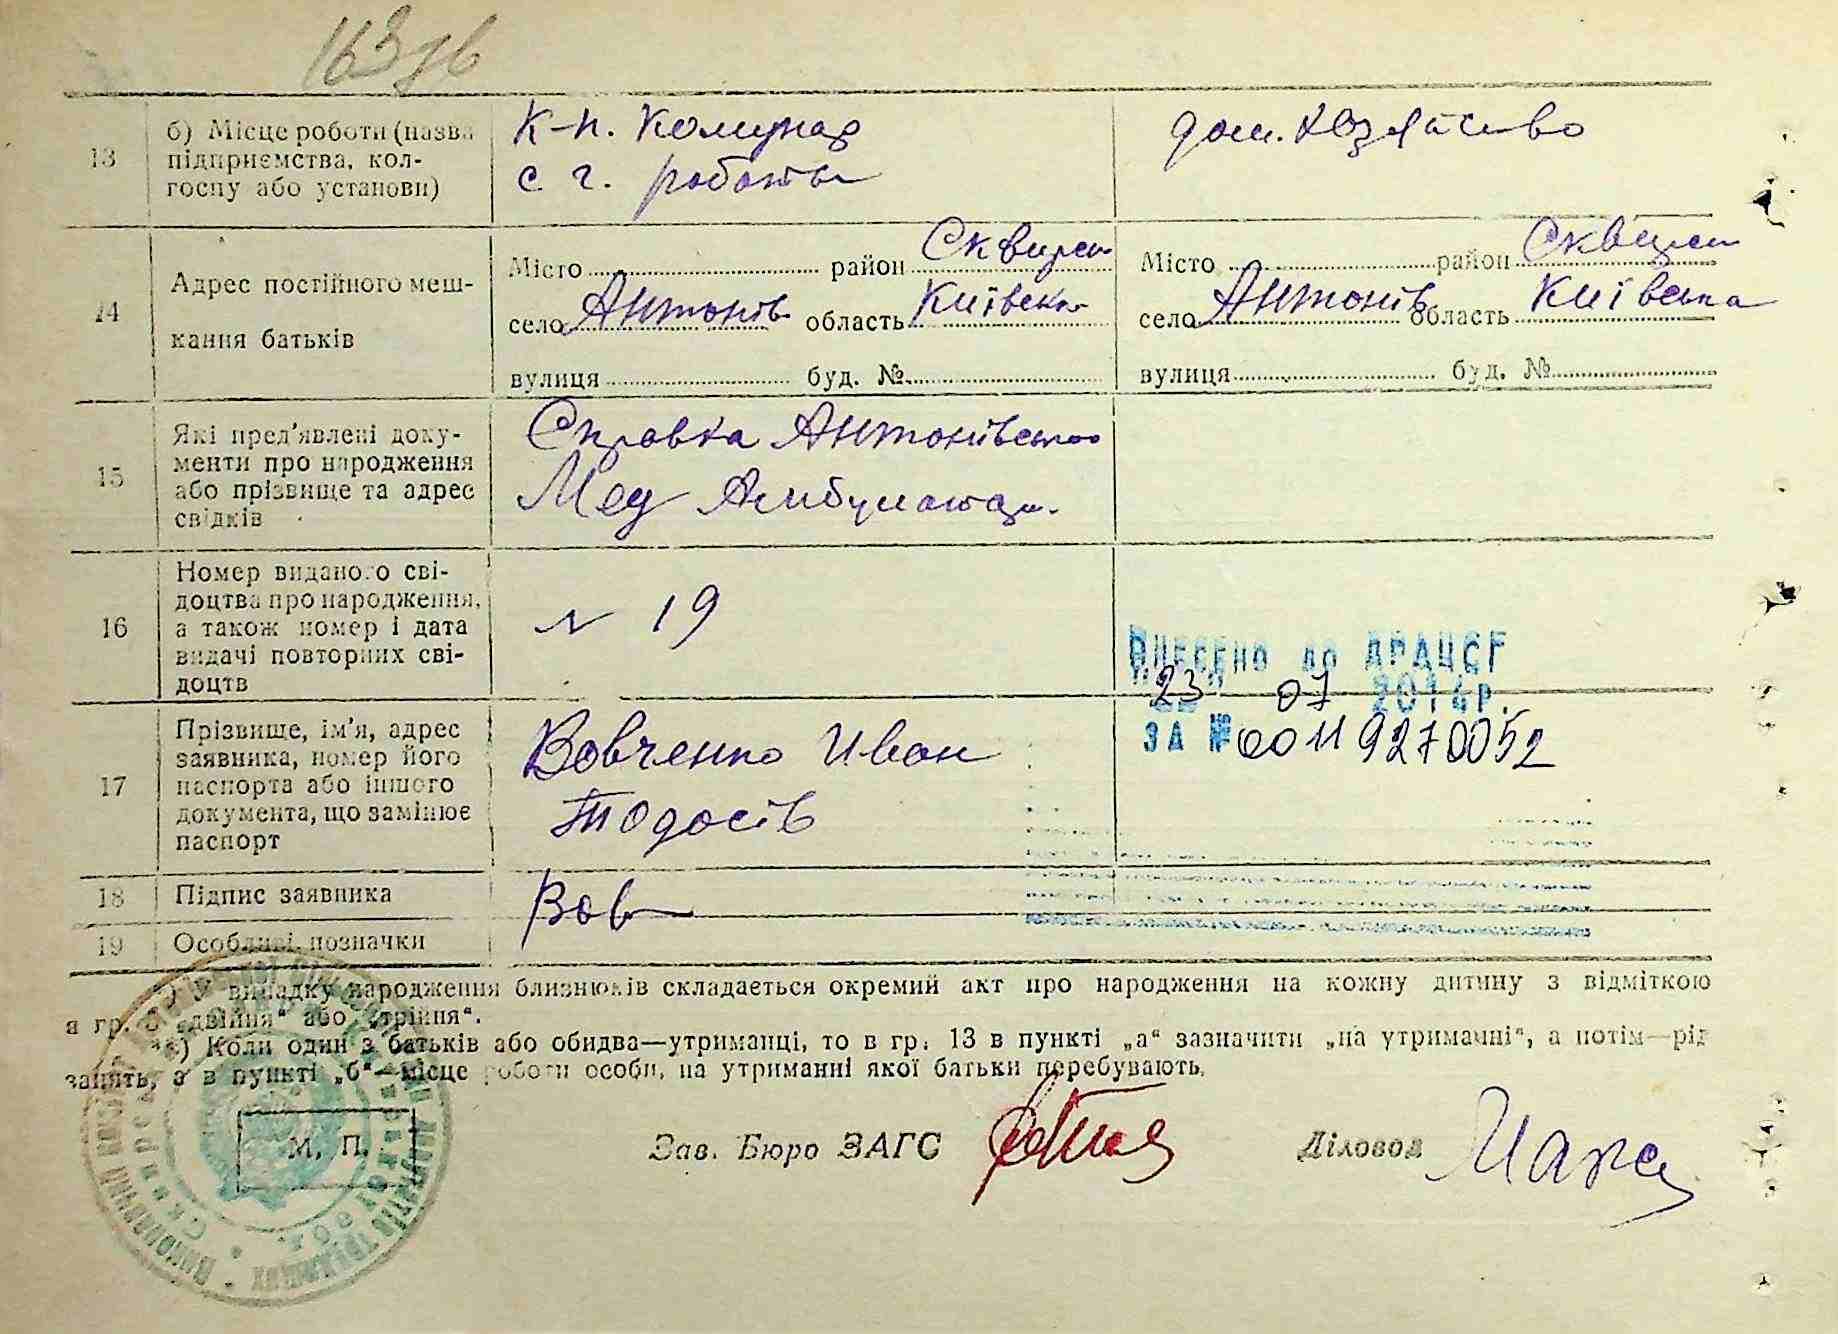 163зв
13
б) Місце роботи (назва
підприємства, кол-
госпу або установи)
К-п. Комунар
с. г. роботи
дом. хозяйство
14
Адрес постійного меш-
кання батьків
Місто район Сквирсь
село Антонів область Київська
вулиця буд. №
Місто район Сквирсь
село Антонів область Київська
вулиця буд. №
15
Які пред'явлені доку-
менти про народження
або прізвище та адрес
свідків
Справка Антонівсько
Мед Амбулатор.
16
Номер виданого сві-
доцтва про народження,
а також номер і дата
видачі повторних сві-
доцтв
№ 19
ВНЕСЕНО до ДРАЦСГ
"23" 07 2014р.
ЗА № 00119270052
17
Прізвище, ім'я, адрес
заявника, номер його
паспорта або іншого
документа, що замінює
паспорт
Вовченко Иван
Тодосів
18
Підпис заявника
Вов
19
Особливі позначки
*) У випадку народження близнюків складається окремий акт про народження на кожну дитину з відміткою
в гр. 6 „двійня“ або „трійня“.
**) Коли один з батьків або обидва—утриманці, то в гр. 13 в пункті „а“ зазначити „на утриманні“, а потім—рід
занять, а в пункті „б“—місце роботи особи, на утриманні якої батьки перебувають.
М. П.
Зав. Бюро ЗАГС
Діловод